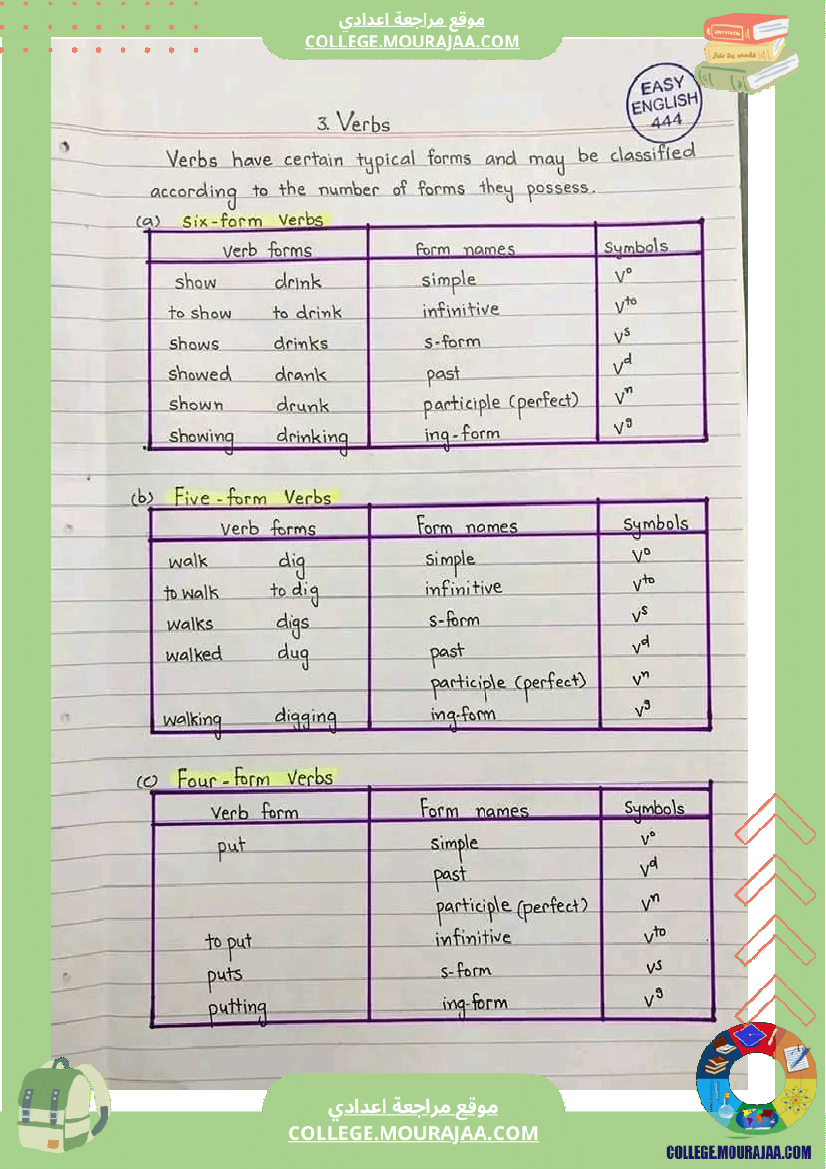 موقع مراجعة اعدادي
COLLEGE.MOURAJAA.COM
EASY
ENGLISH
444
3. Verbs
Verbs have certain typical forms and may be classified
according to the number of forms they possess.
(a) Six-form Verbs
Verb forms Form names Symbols
show drink simple V°
to show to drink infinitive Vᵗᵒ
shows drinks s-form Vˢ
showed drank past Vᵈ
shown drunk participle (perfect) Vⁿ
showing drinking ing-form Vᵍ
(b) Five-form Verbs
Verb forms Form names Symbols
walk dig simple V°
to walk to dig infinitive Vᵗᵒ
walks digs s-form Vˢ
walked dug past Vᵈ
participle (perfect) Vⁿ
walking digging ing-form Vᵍ
(c) Four-form Verbs
Verb form Form names Symbols
put simple V°
past Vᵈ
participle (perfect) Vⁿ
to put infinitive Vᵗᵒ
puts s-form Vˢ
putting ing-form Vᵍ
موقع مراجعة اعدادي
COLLEGE.MOURAJAA.COM
COLLEGE.MOURAJAA.COM